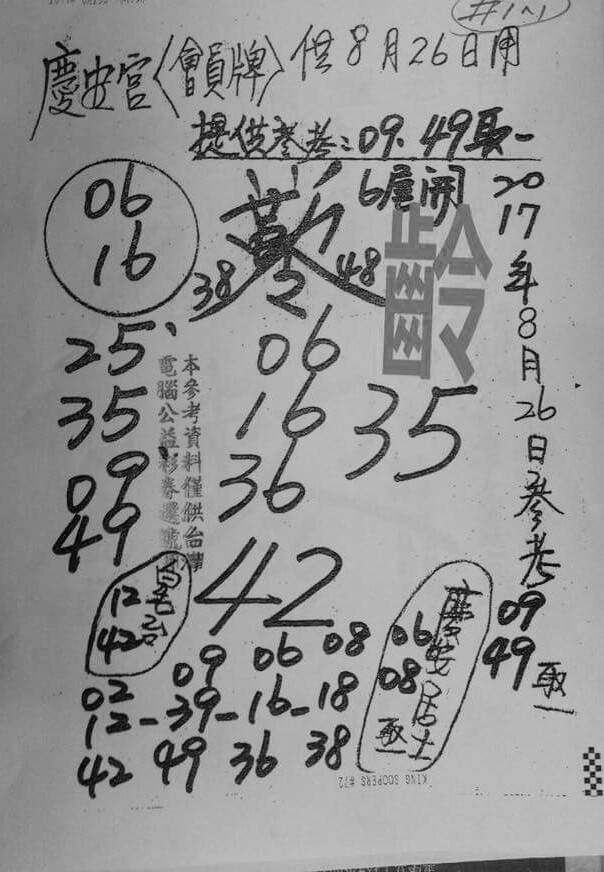 #1~1
慶安宮〈會員牌〉供8月26日用
提供參考:09.49取一
06
16
38
48
6尾開
齡
2017年8月26日參考
09
49取一
25
35
09
49
本參考資料僅供台灣
電腦公益彩券選號
06
16
36
35
42
12
42
06
08
取
02 09 06 08
12-39-16-18
42 49 36 38
KING SOOPERS #72